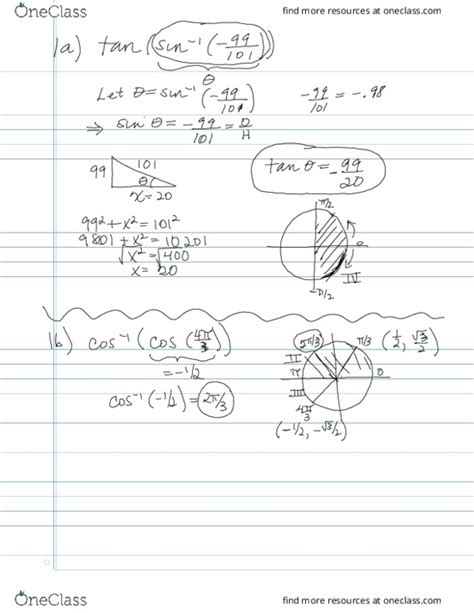 OneClass
find more resources at oneclass.com
1a) tan(sin⁻¹(-99/101))
θ
Let θ = sin⁻¹(-99/101)    -99/101 = -.98
⇒ sin θ = -99/101 = O/H
99  101  θ  x = 20
tan θ = -99/20
99² + x² = 101²
9801 + x² = 10201
√x² = √400
x = 20
π/2
0
IV
-π/2
1b) cos⁻¹(cos(4π/3))
= -1/2
cos⁻¹(-1/2) = 2π/3
π/3  (1/2, √3/2)
II
π
0
III
4π/3
(-1/2, -√3/2)
OneClass
find more resources at oneclass.com